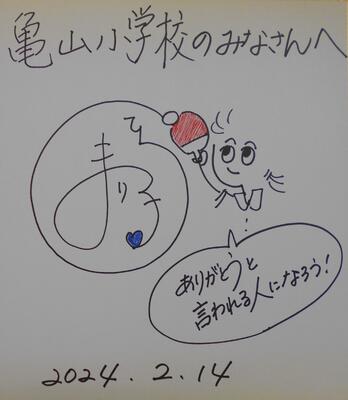 亀山小学校のみなさんへ
ありがとうと
言われる人になろう!
2024.2.14